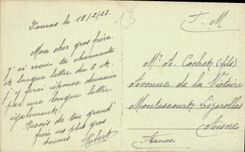 Damas le 18/2/23
13
F. M
Mon cher gros père
j'ai reçu ta charmante
et longue lettre du 6 ct.
j'y ferai réponse demain
par une longue lettre
également.
Reçois de ton grand
fils ses plus gros
baisers
Robert
Mr L. Cochet (fils)
Avenue de la Victoire
Montescourt-Lizerolles
Aisne
France